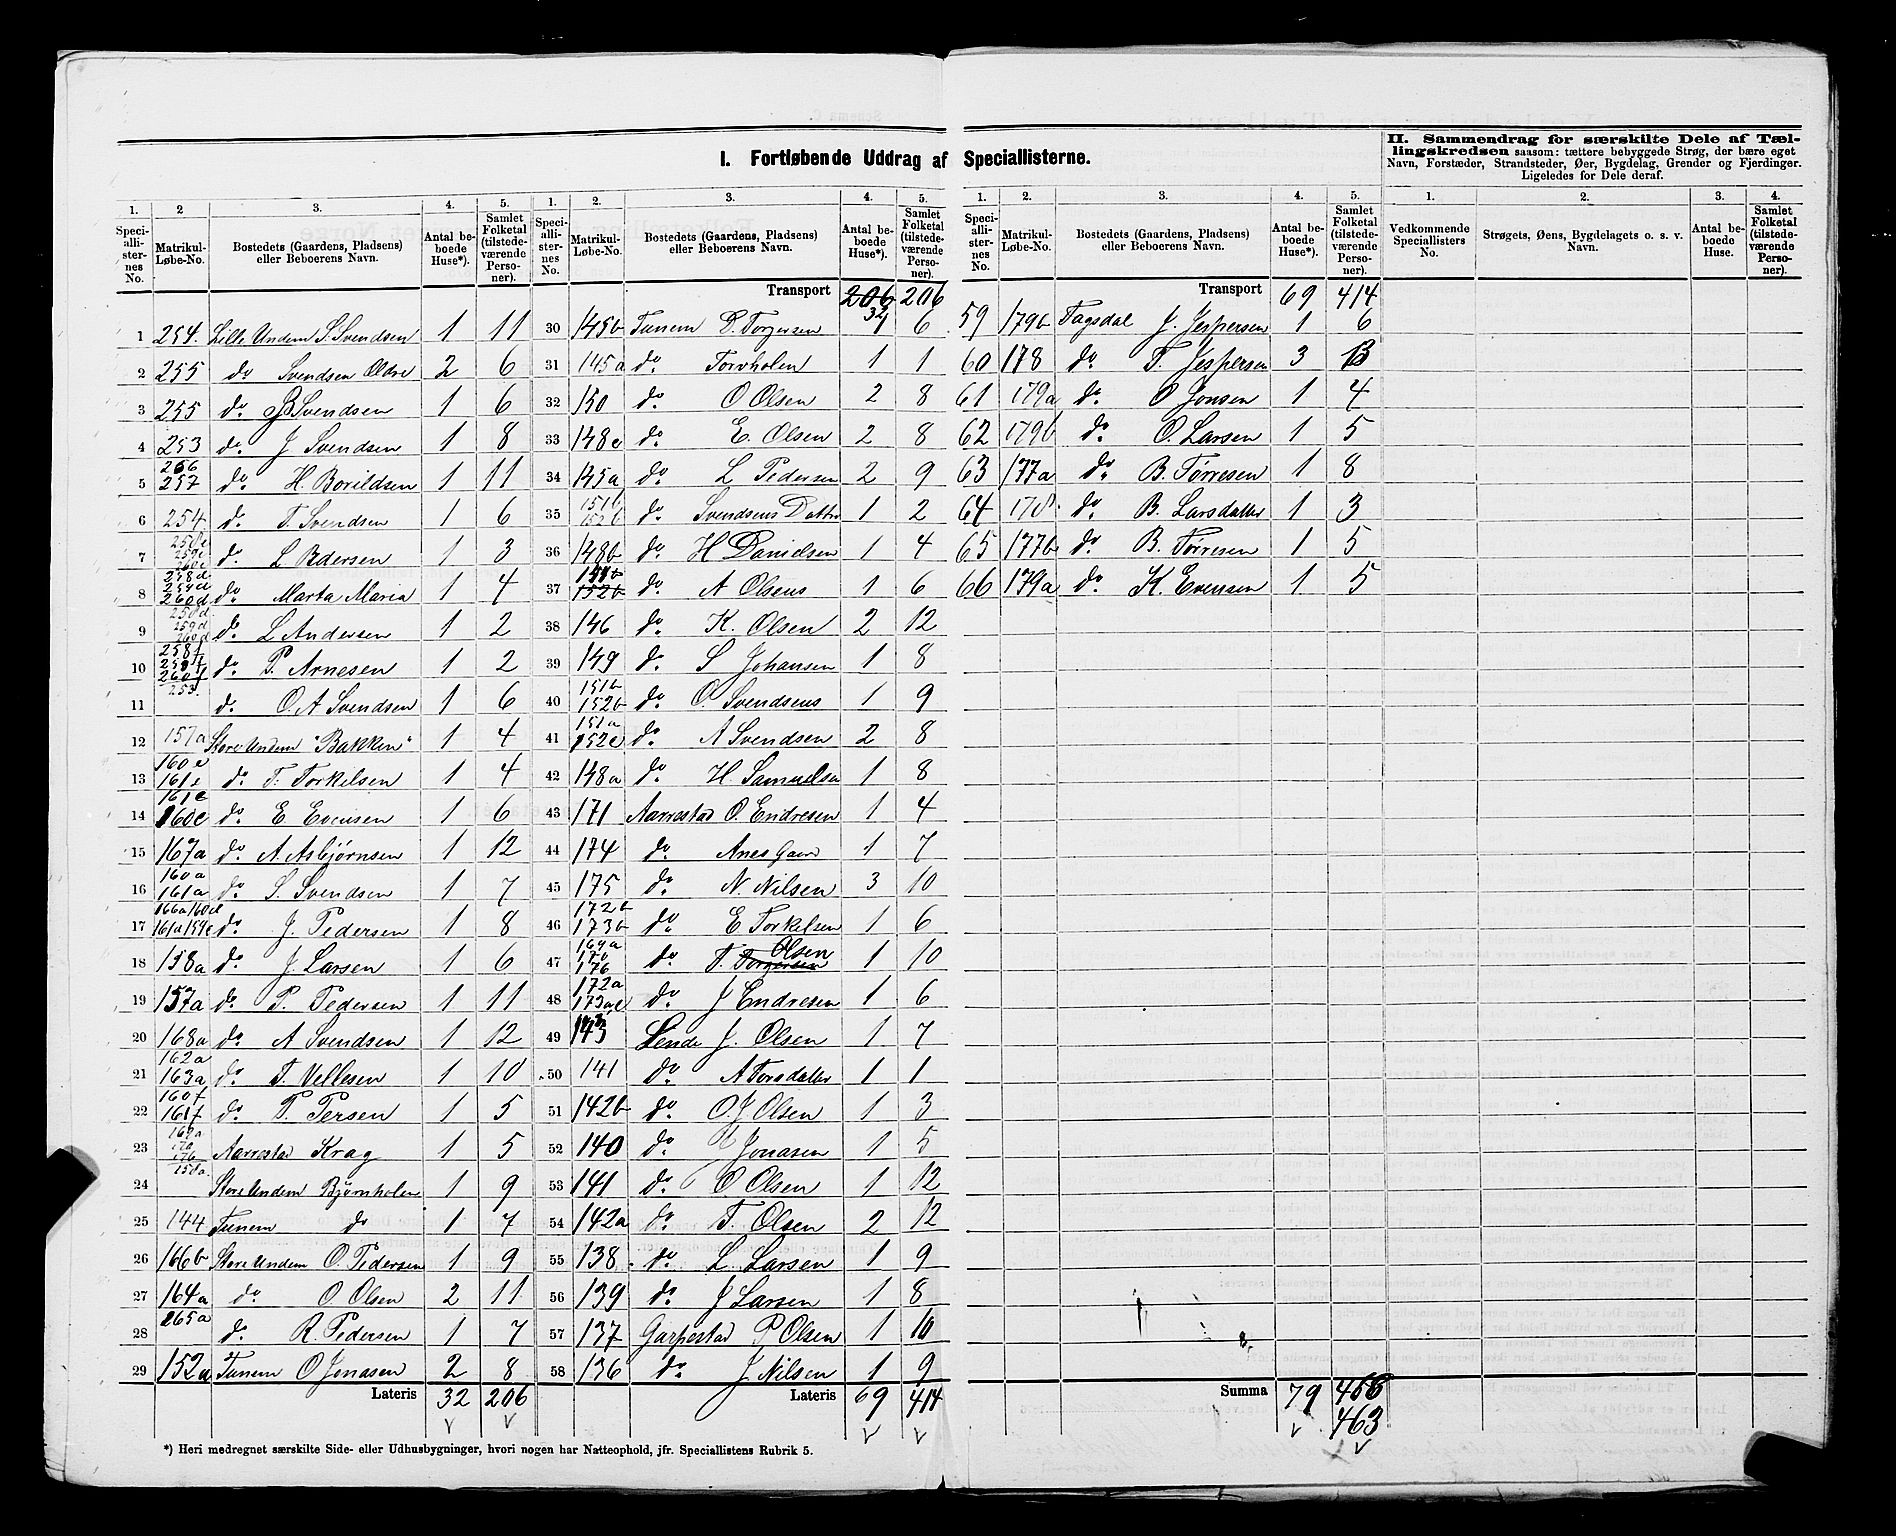 I. Fortløbende Uddrag af Speciallisterne.
II. Sammendrag for særskilte Dele af Tællingskredsen saasom: tættere bebyggede Strøg, der bære eget Navn, Forstæder, Strandsteder, Øer, Bygdelag, Grender og Fjerdinger. Ligeledes for Dele deraf.
1. 2 3. 4. 5. 1. 2. 3. 4. 5. 1. 2. 3. 4. 5. 1. 2. 3. 4.
Speciallisternes No. Matrikul-Løbe-No. Bostedets (Gaardens, Pladsens) eller Beboerens Navn. Antal beboede Huse*). Samlet Folketal (tilstedeværende Personer).
Speciallisternes No. Matrikul-Løbe-No. Bostedets (Gaardens, Pladsens) eller Beboerens Navn. Antal beboede Huse*). Samlet Folketal (tilstedeværende Personer).
Speciallisternes No. Matrikul-Løbe-No. Bostedets (Gaardens, Pladsens) eller Beboerens Navn. Antal beboede Huse*). Samlet Folketal (tilstedeværende Personer).
Vedkommende Speciallisters No. Strøgets, Øens, Bygdelagets o. s. v. Navn. Antal beboede Huse. Samlet Folketal (tilstedeværende Personer).
1 254 Lille Undem S. Svendsen 1 11
2 255 do Svendsen Oldre 2 6
3 255 do B Svendsen 1 6
4 253 do J Svendsen 1 8
5 256 257 do H. Borildsen 1 11
6 254 do T. Svendsen 1 6
7 258e 259e 260e do L Pdersen 1 3
8 258d 259d 260d do Marta Maria 1 4
9 258d 259d 260d do L Andersen 1 2
10 258f 259f 260f do P. Arnesen 1 2
11 253 do O. A Svendsen 1 6
12 157a Store Undem "Bakken" 1 4
13 160e 161e do T. Torkilsen 1 4
14 161c 160c do E Evensen 1 6
15 167a do A. Asbjørnsen 1 12
16 160a 161a do S. Svendsen 1 7
17 166a 160d do J. Pedersen 1 8
18 158a do J. Larsen 1 6
19 157a do P. Pedersen 1 11
20 168a do A Svendsen 1 12
21 162a 163a do T. Vellesen 1 10
22 160f 161f do P. Persen 1 5
23 169a 170 176 Aarrestad Krag 1 5
24 158a Store Undem Bjørnholen 1 9
25 144 Tunem do 1 7
26 166b Store Undem O. Pedersen 1 9
27 164a do O. Olsen 2 11
28 265a do R. Pedersen 1 7
29 152a Tunem O Jonasen 2 8
Lateris 32 206
Transport 206 32 206
30 145b Tunem D. Torgersen 1 6
31 145a do Torvholen 1 1
32 150 do O Olsen 2 8
33 148c do E. Olsen 2 8
34 145a do L Pedersen 2 9
35 151b 152b do Svendsens Datter 1 2
36 148b do H Danielsen 1 4
37 151b 152b do A Olsens 1 6
38 146 do K. Olsen 2 12
39 149 do S Johansen 1 8
40 151b 152b do O. Svendsens 1 9
41 151a 152c do A Svendsen 2 8
42 148a do H. Samuelsen 1 8
43 171 Aarrestad O. Endresen 1 4
44 174 do Anes Gaard 1 7
45 175 do N. Nilsen 3 10
46 172b 173b do E Torkelsen 1 6
47 169a 170 176 do T. Torgersen Olsen 1 10
48 172a 173a do J Endresen 1 6
49 143 Lende J. Olsen 1 7
50 141 do A Torsdatter 1 1
51 142b do O. J Olsen 1 3
52 140 do Jonasen 1 5
53 141 do O Olsen 1 12
54 142a do T. Olsen 2 12
55 138 do L. Larsen 1 9
56 139 do J Larsen 1 8
57 137 Garpestad P. Olsen 1 10
58 136 do J Nilsen 1 9
Lateris 69 414
Transport 69 414
59 179b Tagsdal J. Jespersen 1 6
60 178 do T. Jespersen 3 13
61 179a do O Jonsen 1 4
62 179b do O. Larsen 1 5
63 177a do B. Tørresen 1 8
64 178 do B. Larsdatter 1 3
65 177b do B. Tørresen 1 5
66 179a do K. Evensen 1 5
Summa 79 466
463
*) Heri medregnet særskilte Side- eller Udhusbygninger, hvori nogen har Natteophold, jfr. Speciallistens Rubrik 5.